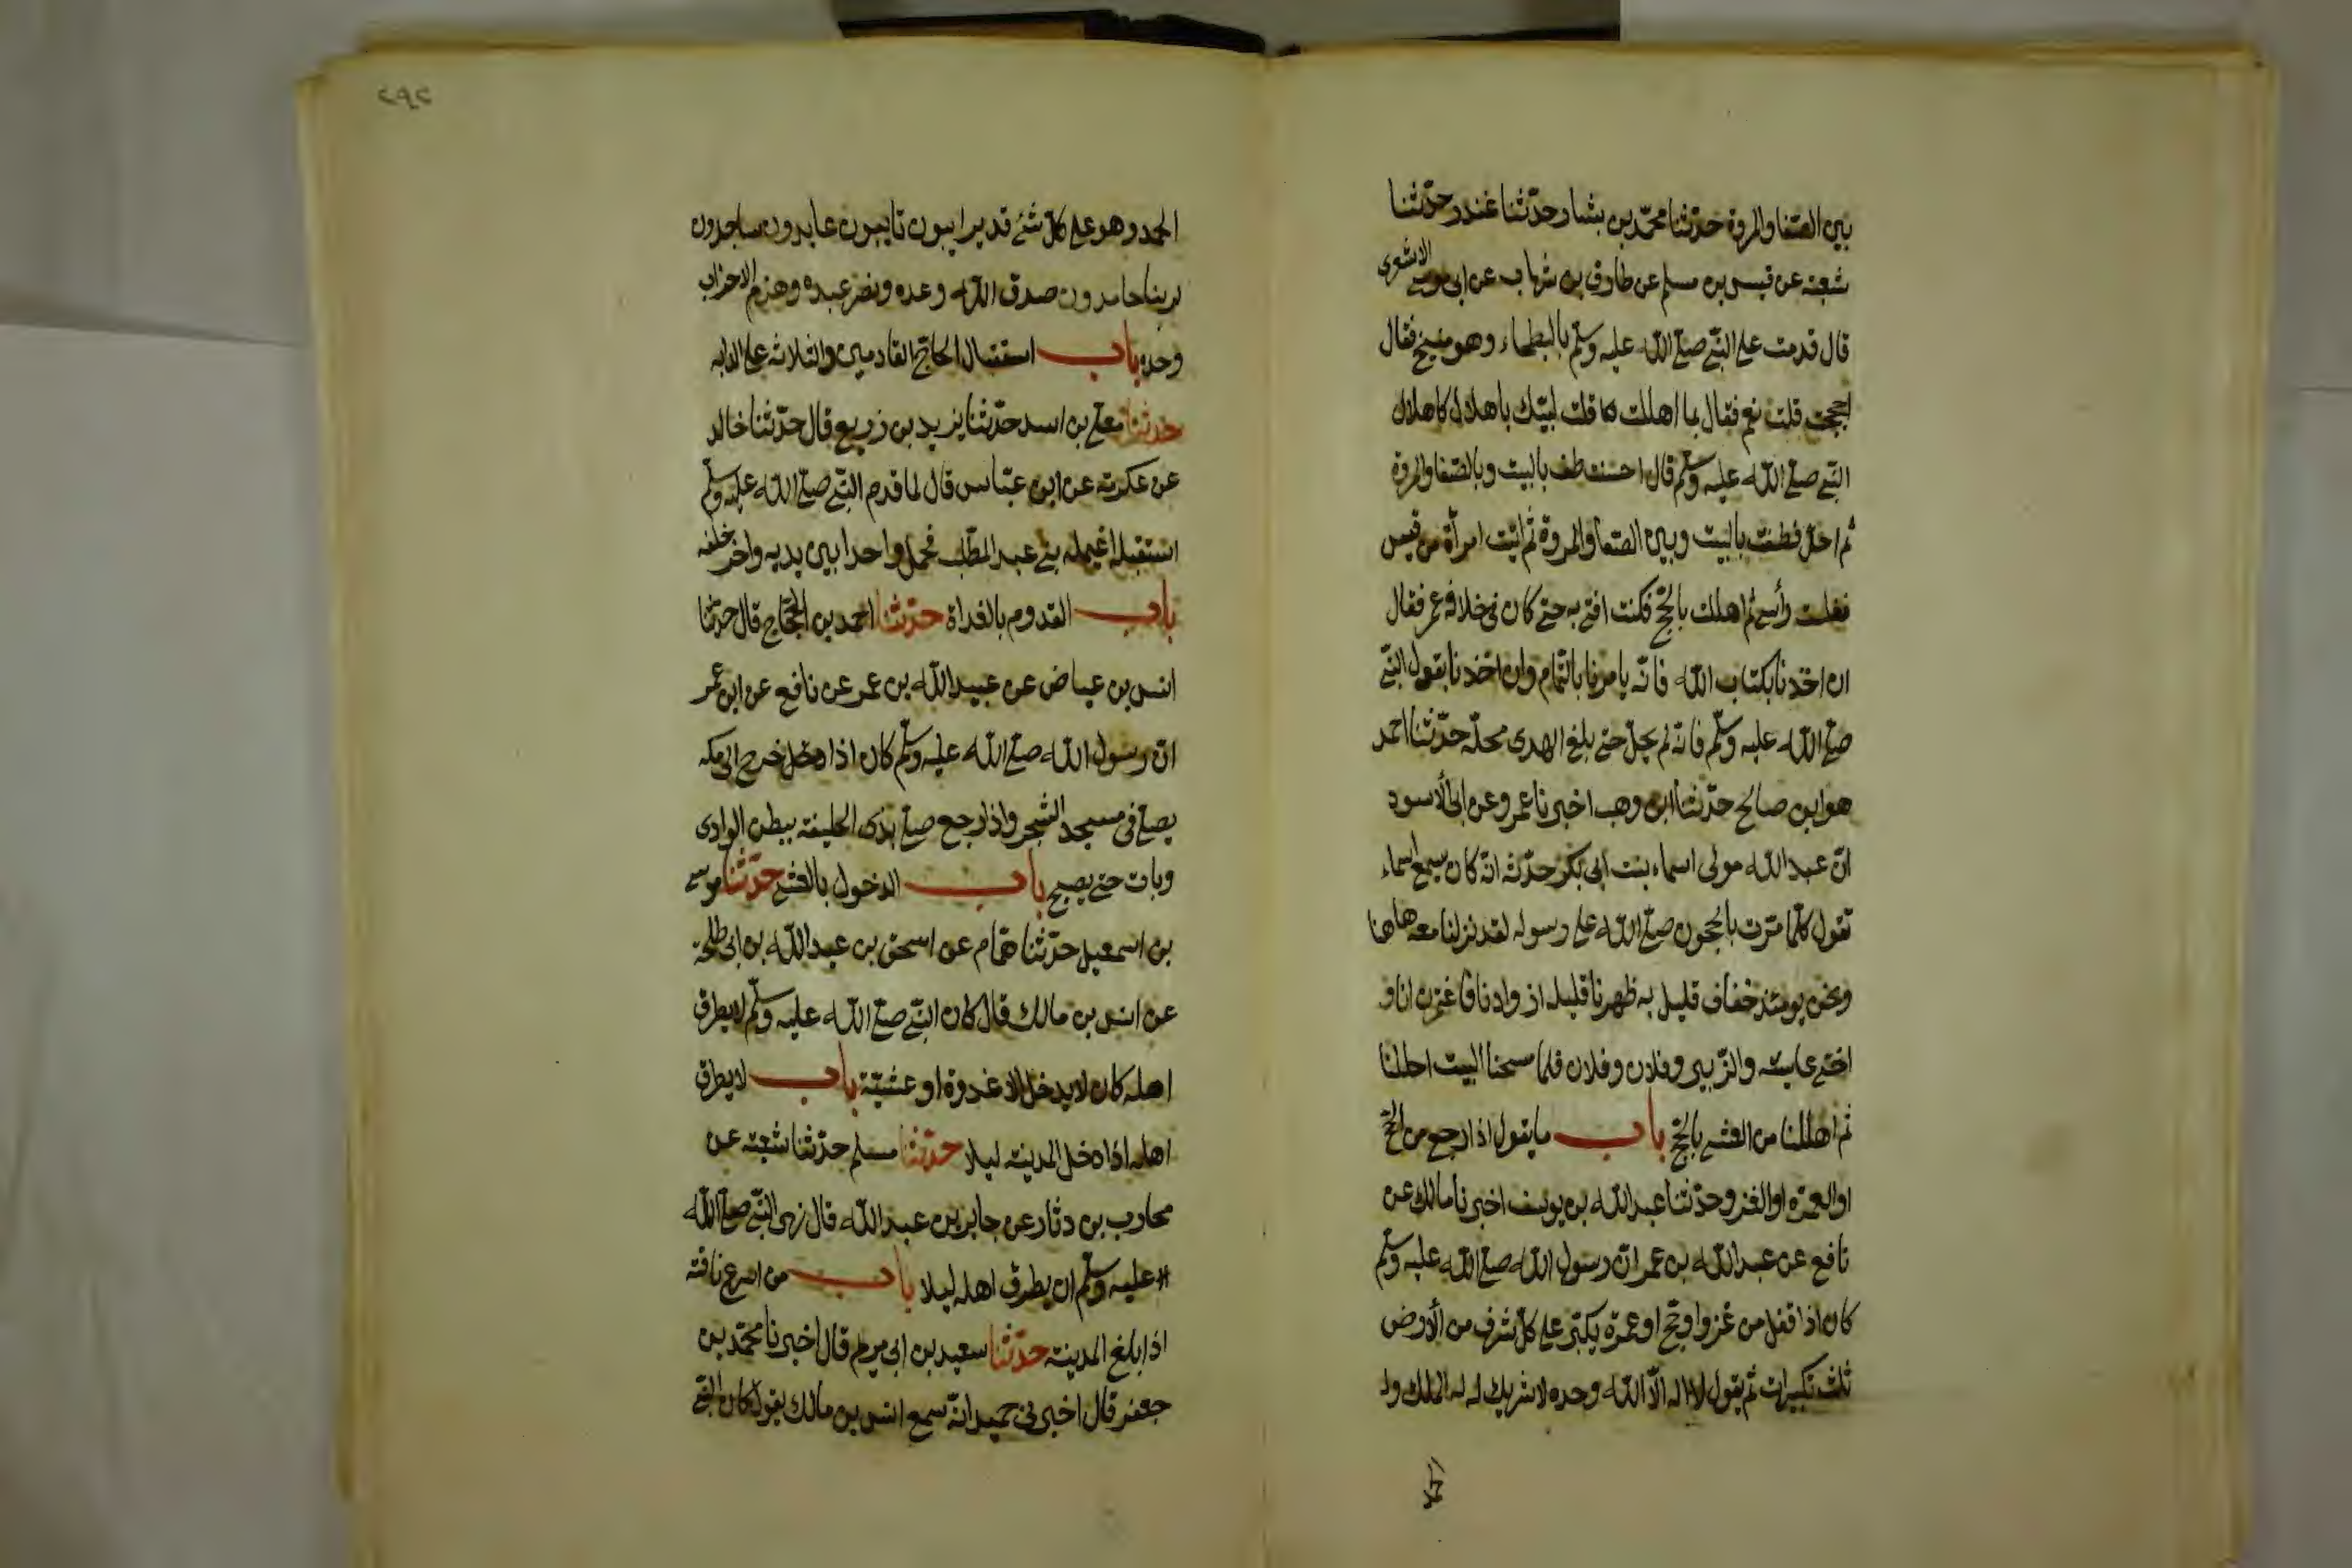 بين الصفا والمروة حدثنا محمد بن بشار حدثنا غندر حدثنا
شعبة عن قيس بن مسلم عن طارق بن شهاب عن ابى موسى الاشعرى
قال قدمت على النبى صلى الله عليه وسلم بالبطحاء وهو منيخ فقال
احججت قلت نعم فقال بما اهللت قلت لبيك باهلال كاهلال
النبى صلى الله عليه وسلم قال احسنت طف بالبيت وبالصفا والمروة
ثم احل فطفت بالبيت وبين الصفا والمروة ثم اتيت امرأة من قيس
ففلت رأسى ثم اهللت بالحج فكنت افتى به حتى كان فى خلافة عمر فقال
ان اخذنا بكتاب الله فانه يامرنا بالتمام وان اخذنا بقول النبى
صلى الله عليه وسلم فانه لم يحل حتى بلغ الهدى محله حدثنا احمد
هو ابن صالح حدثنا ابن وهب اخبرنا عمرو عن ابى الأسود
ان عبد الله مولى اسماء بنت ابى بكر حدثه انه كان يسمع اسماء
تقول كلما مرت بالحجون صلى الله على رسوله لقد نزلنا معه هاهنا
ونحن يومئذ خفاف قليل به ظهرنا قليلة ازوادنا فاعتمرت انا و
اختى عايشة والزبير وفلان وفلان فلما مسحنا البيت احللنا
ثم اهللنا من العشى بالحج باب ما يقول اذا رجع من الحج
او العمرة او الغزو حدثنا عبد الله بن يوسف اخبرنا مالك عن
نافع عن عبد الله بن عمر ان رسول الله صلى الله عليه وسلم
كان اذا قفل من غزو او حج او عمرة يكبر على كل شرف من الأرض
ثلث تكبيرات ثم يقول لا اله الا الله وحده لا شريك له له الملك وله
٢٩٢
الحمد وهو على كل شئ قدير ايبون تايبون عابدون ساجدون
لربنا حامدون صدق الله وعده ونصر عبده وهزم الاحزاب
وحده باب استقبال الحاج القادمين والثلاثة على الدابة
حدثنا معلى بن اسد حدثنا يزيد بن زريع قال حدثنا خالد
عن عكرمة عن ابن عباس قال لما قدم النبى صلى الله عليه وسلم
استقبله اغيلمة بنى عبد المطلب فحمل واحدا بين يديه واخر خلفه
باب القدوم بالغداة حدثنا احمد بن الحجاج قال حدثنا
انس بن عياض عن عبيد الله بن عمر عن نافع عن ابن عمر
ان رسول الله صلى الله عليه وسلم كان اذا خرج الى مكة
يصلى فى مسجد الشجر واذا رجع صلى بذى الحليفة ببطن الوادى
وبات حتى يصبح باب الدخول بالعشى حدثنا موسى
بن اسمعيل حدثنا همام عن اسحق بن عبد الله بن ابى طلحة
عن انس بن مالك قال كان النبى صلى الله عليه وسلم لا يطرق
اهله كان لا يدخل الا غدوة او عشية باب لا يطرق
اهله اذا دخل المدينة ليلا حدثنا مسلم حدثنا شعبة عن
محارب بن دثار عن جابر بن عبد الله قال نهى النبى صلى الله
عليه وسلم ان يطرق اهله ليلا باب من اسرع ناقته
اذا بلغ المدينة حدثنا سعيد بن ابى مريم قال اخبرنا محمد بن
جعفر قال اخبرنى حميد انه سمع انس بن مالك يقول كان النبى